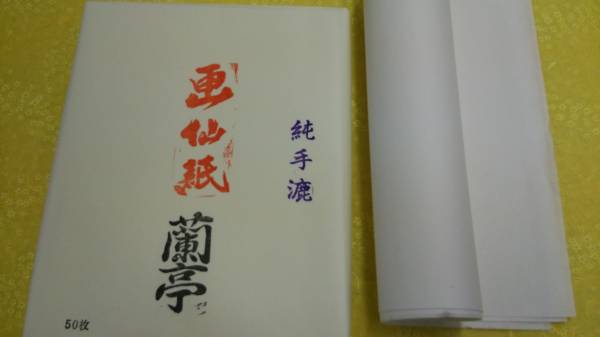 純手漉
画仙紙
蘭亭
50枚